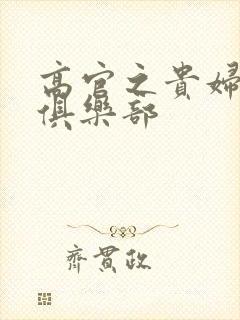 高官之貴婦
俱樂部
齊貫政